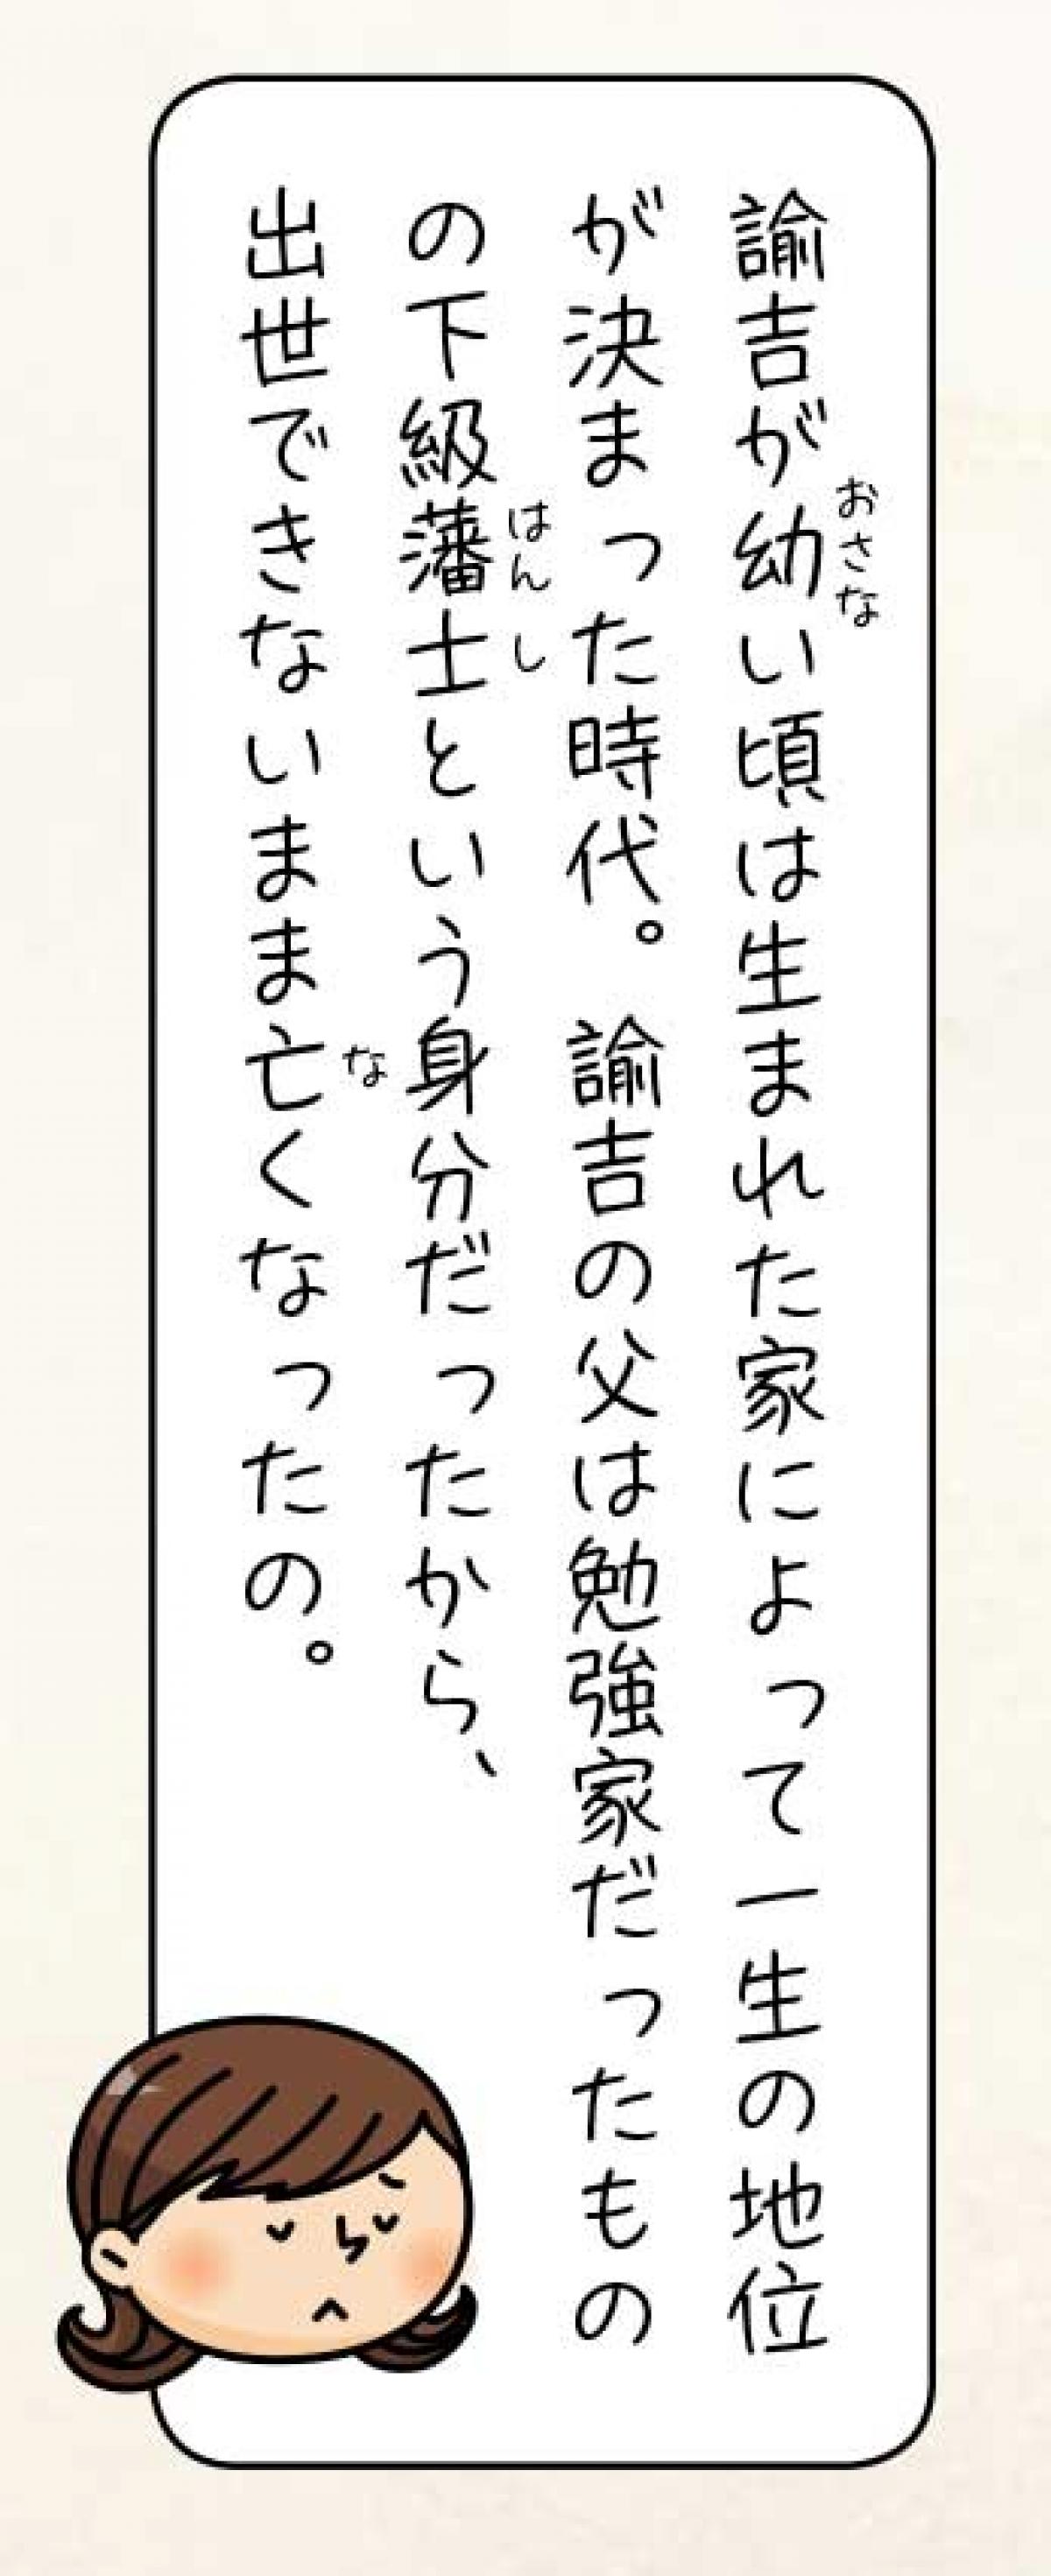 諭吉が幼い頃は生まれた家によって一生の地位
おさな
が決まった時代。諭吉の父は勉強家だったもの
の下級藩士という身分だったから、
はんし
出世できないまま亡くなったの。
な